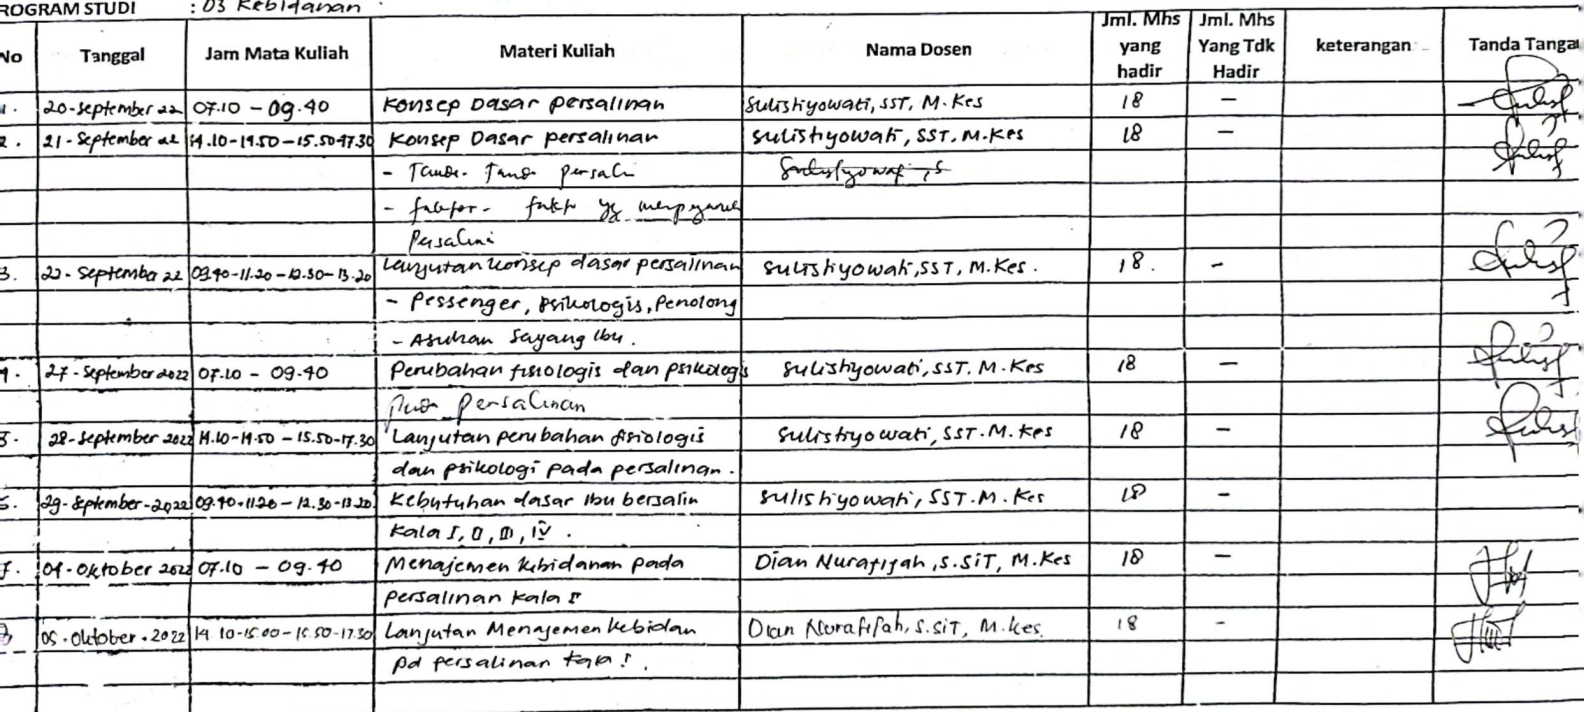 ROGRAM STUDI : D3 Kebidanan
No Tanggal Jam Mata Kuliah Materi Kuliah Nama Dosen Jml. Mhs yang hadir Jml. Mhs Yang Tdk Hadir keterangan Tanda Tangan
1. 20-September 22 07.10 - 09.40 Konsep Dasar persalinan Sulistiyowati, SST, M.Kes 18 -
2. 21-September 22 14.10-14.50-15.50-17.30 Konsep Dasar persalinan Sulistiyowati, SST, M.Kes 18 -
- Tanda-Tanda persali
- faktor- fakto yg mempengaruhi
Persalini
3. 22-September 22 09.40-11.20-12.30-13.20 Lanjutan konsep dasar persalinan Sulistiyowati, SST, M.Kes. 18. -
- Pessenger, psikologis, Penolong
- Asuhan Sayang Ibu.
4. 27-September 2022 07.10 - 09.40 Perubahan fisiologis dan psikologis Sulistiyowati, SST. M.Kes 18 -
pada persalinan
5. 28-September 2022 14.10-14.50-15.50-17.30 Lanjutan perubahan fisiologis Sulistiyowati, SST.M.Kes 18 -
dan psikologi pada persalinan.
6. 29-September-2022 09.40-11.20-12.30-13.20 Kebutuhan dasar Ibu bersalin Sulistiyowati, SST.M.Kes 18 -
Kala I, II, III, IV.
7. 04-Oktober 2022 07.10 - 09.40 Menajemen kebidanan pada Dian Nurafifah, S.SiT, M.Kes 18 -
persalinan Kala I
05-Oktober-2022 14.10-15.00-15.50-17.30 Lanjutan Menajemen kebidan Dian Nurafifah, S.SiT, M.Kes. 18 -
pd persalinan Kala I.